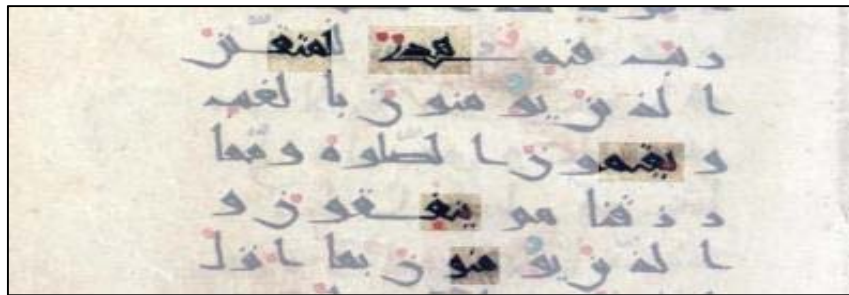 ريب فيه هدى للمتقين
الذين يؤمنون بالغيب
ويقيمون الصلوة ومما
رزقنهم ينفقون و
الذين يؤمنون بما انزل